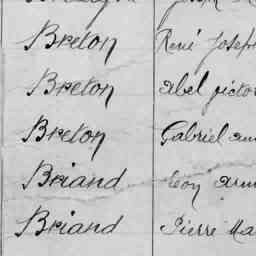 Breton René Joseph
Breton Abel Victor
Breton Gabriel
Briand Léon
Briand Pierre Ma